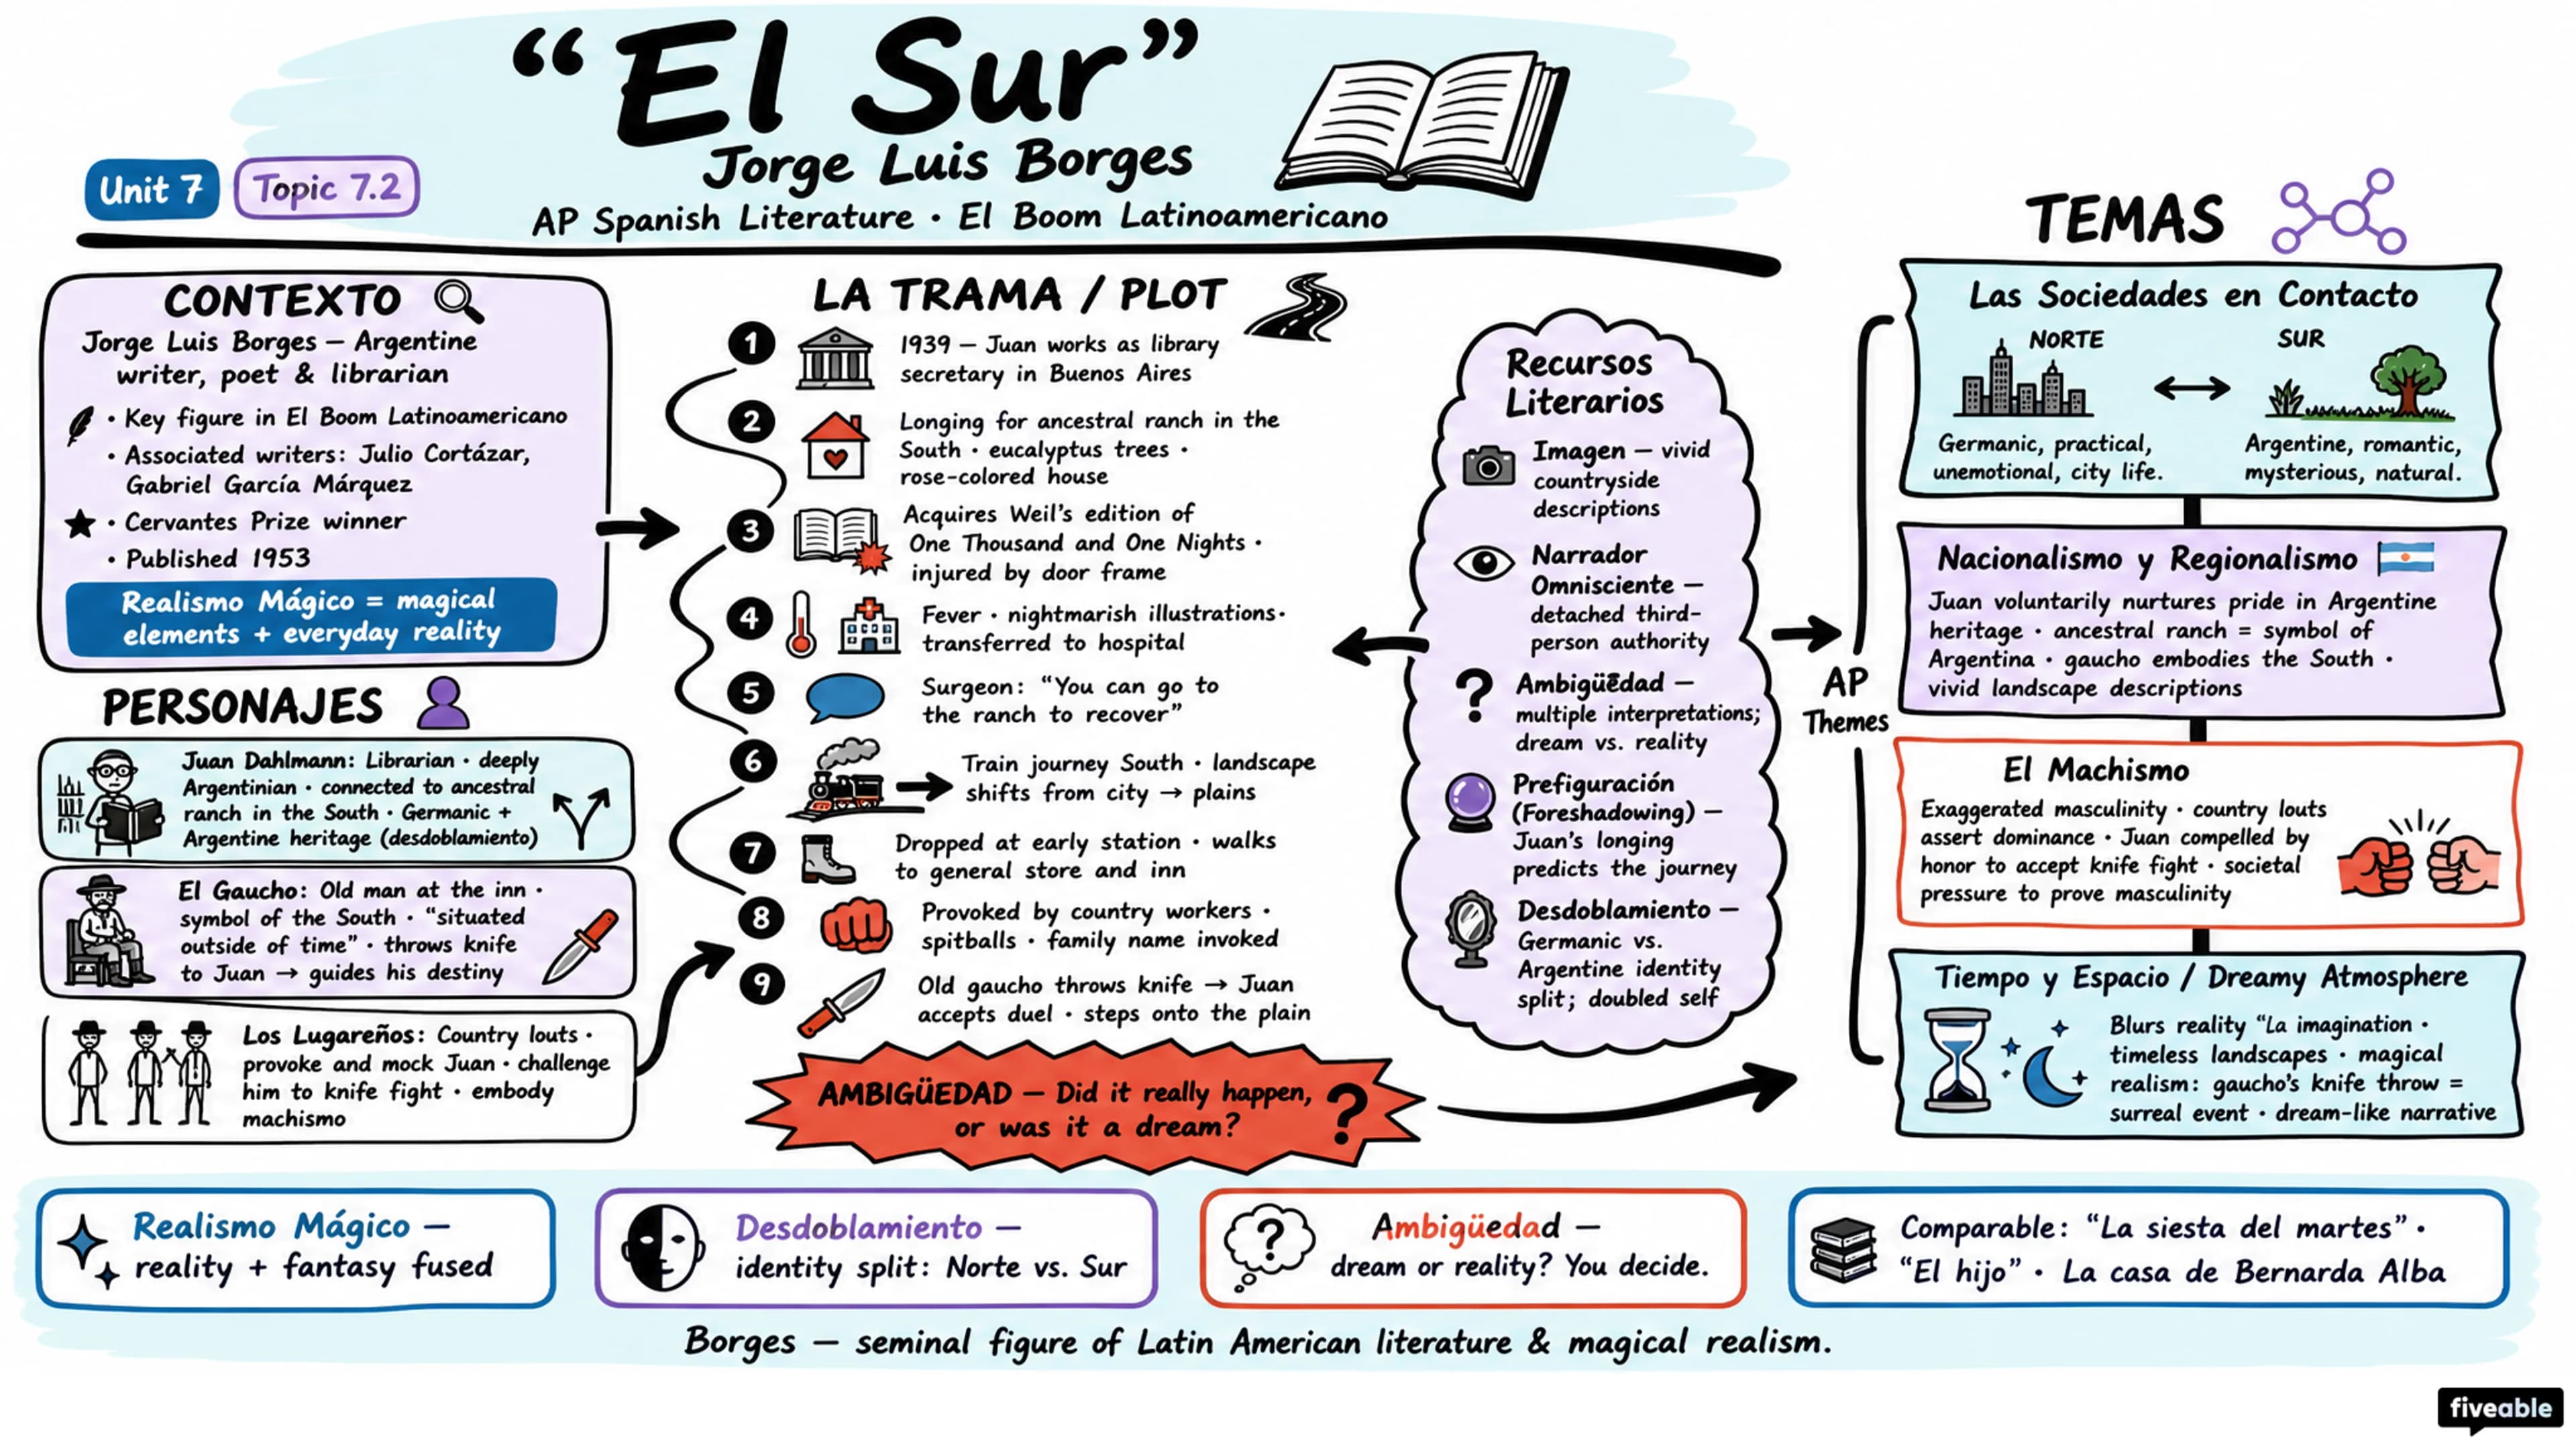 “El Sur”
Jorge Luis Borges
AP Spanish Literature • El Boom Latinoamericano
Unit 7
Topic 7.2
CONTEXTO
Jorge Luis Borges – Argentine
writer, poet & librarian
• Key figure in El Boom Latinoamericano
• Associated writers: Julio Cortázar,
Gabriel García Márquez
• Cervantes Prize winner
• Published 1953
Realismo Mágico = magical
elements + everyday reality
PERSONAJES
Juan Dahlmann: Librarian • deeply
Argentinian • connected to ancestral
ranch in the South • Germanic +
Argentine heritage (desdoblamiento)
El Gaucho: Old man at the inn •
symbol of the South • “situated
outside of time” • throws knife
to Juan → guides his destiny
Los Lugareños: Country louts •
provoke and mock Juan • challenge
him to knife fight • embody
machismo
LA TRAMA / PLOT
1
1939 – Juan works as library
secretary in Buenos Aires
2
Longing for ancestral ranch in the
South • eucalyptus trees •
rose-colored house
3
Acquires Weil’s edition of
One Thousand and One Nights •
injured by door frame
4
Fever • nightmarish illustrations•
transferred to hospital
5
Surgeon: “You can go to
the ranch to recover”
6
Train journey South • landscape
shifts from city → plains
7
Dropped at early station • walks
to general store and inn
8
Provoked by country workers •
spitballs • family name invoked
9
Old gaucho throws knife → Juan
accepts duel • steps onto the plain
AMBIGÜEDAD – Did it really happen,
or was it a dream?
?
Recursos
Literarios
Imagen – vivid
countryside
descriptions
Narrador
Omnisciente –
detached third-
person authority
?
Ambigüedad –
multiple interpretations;
dream vs. reality
Prefiguración
(Foreshadowing) –
Juan’s longing
predicts the journey
Desdoblamiento –
Germanic vs.
Argentine identity
split; doubled self
AP
Themes
TEMAS
Las Sociedades en Contacto
NORTE
SUR
Germanic, practical,
unemotional, city life.
Argentine, romantic,
mysterious, natural.
Nacionalismo y Regionalismo
Juan voluntarily nurtures pride in Argentine
heritage • ancestral ranch = symbol of
Argentina • gaucho embodies the South •
vivid landscape descriptions
El Machismo
Exaggerated masculinity • country louts
assert dominance • Juan compelled by
honor to accept knife fight • societal
pressure to prove masculinity
Tiempo y Espacio / Dreamy Atmosphere
Blurs reality “La imagination •
timeless landscapes • magical
realism: gaucho’s knife throw =
surreal event • dream-like narrative
Realismo Mágico –
reality + fantasy fused
Desdoblamiento –
identity split: Norte vs. Sur
?
Ambigüedad –
dream or reality? You decide.
Comparable: “La siesta del martes” •
“El hijo” • La casa de Bernarda Alba
Borges – seminal figure of Latin American literature & magical realism.
fiveable